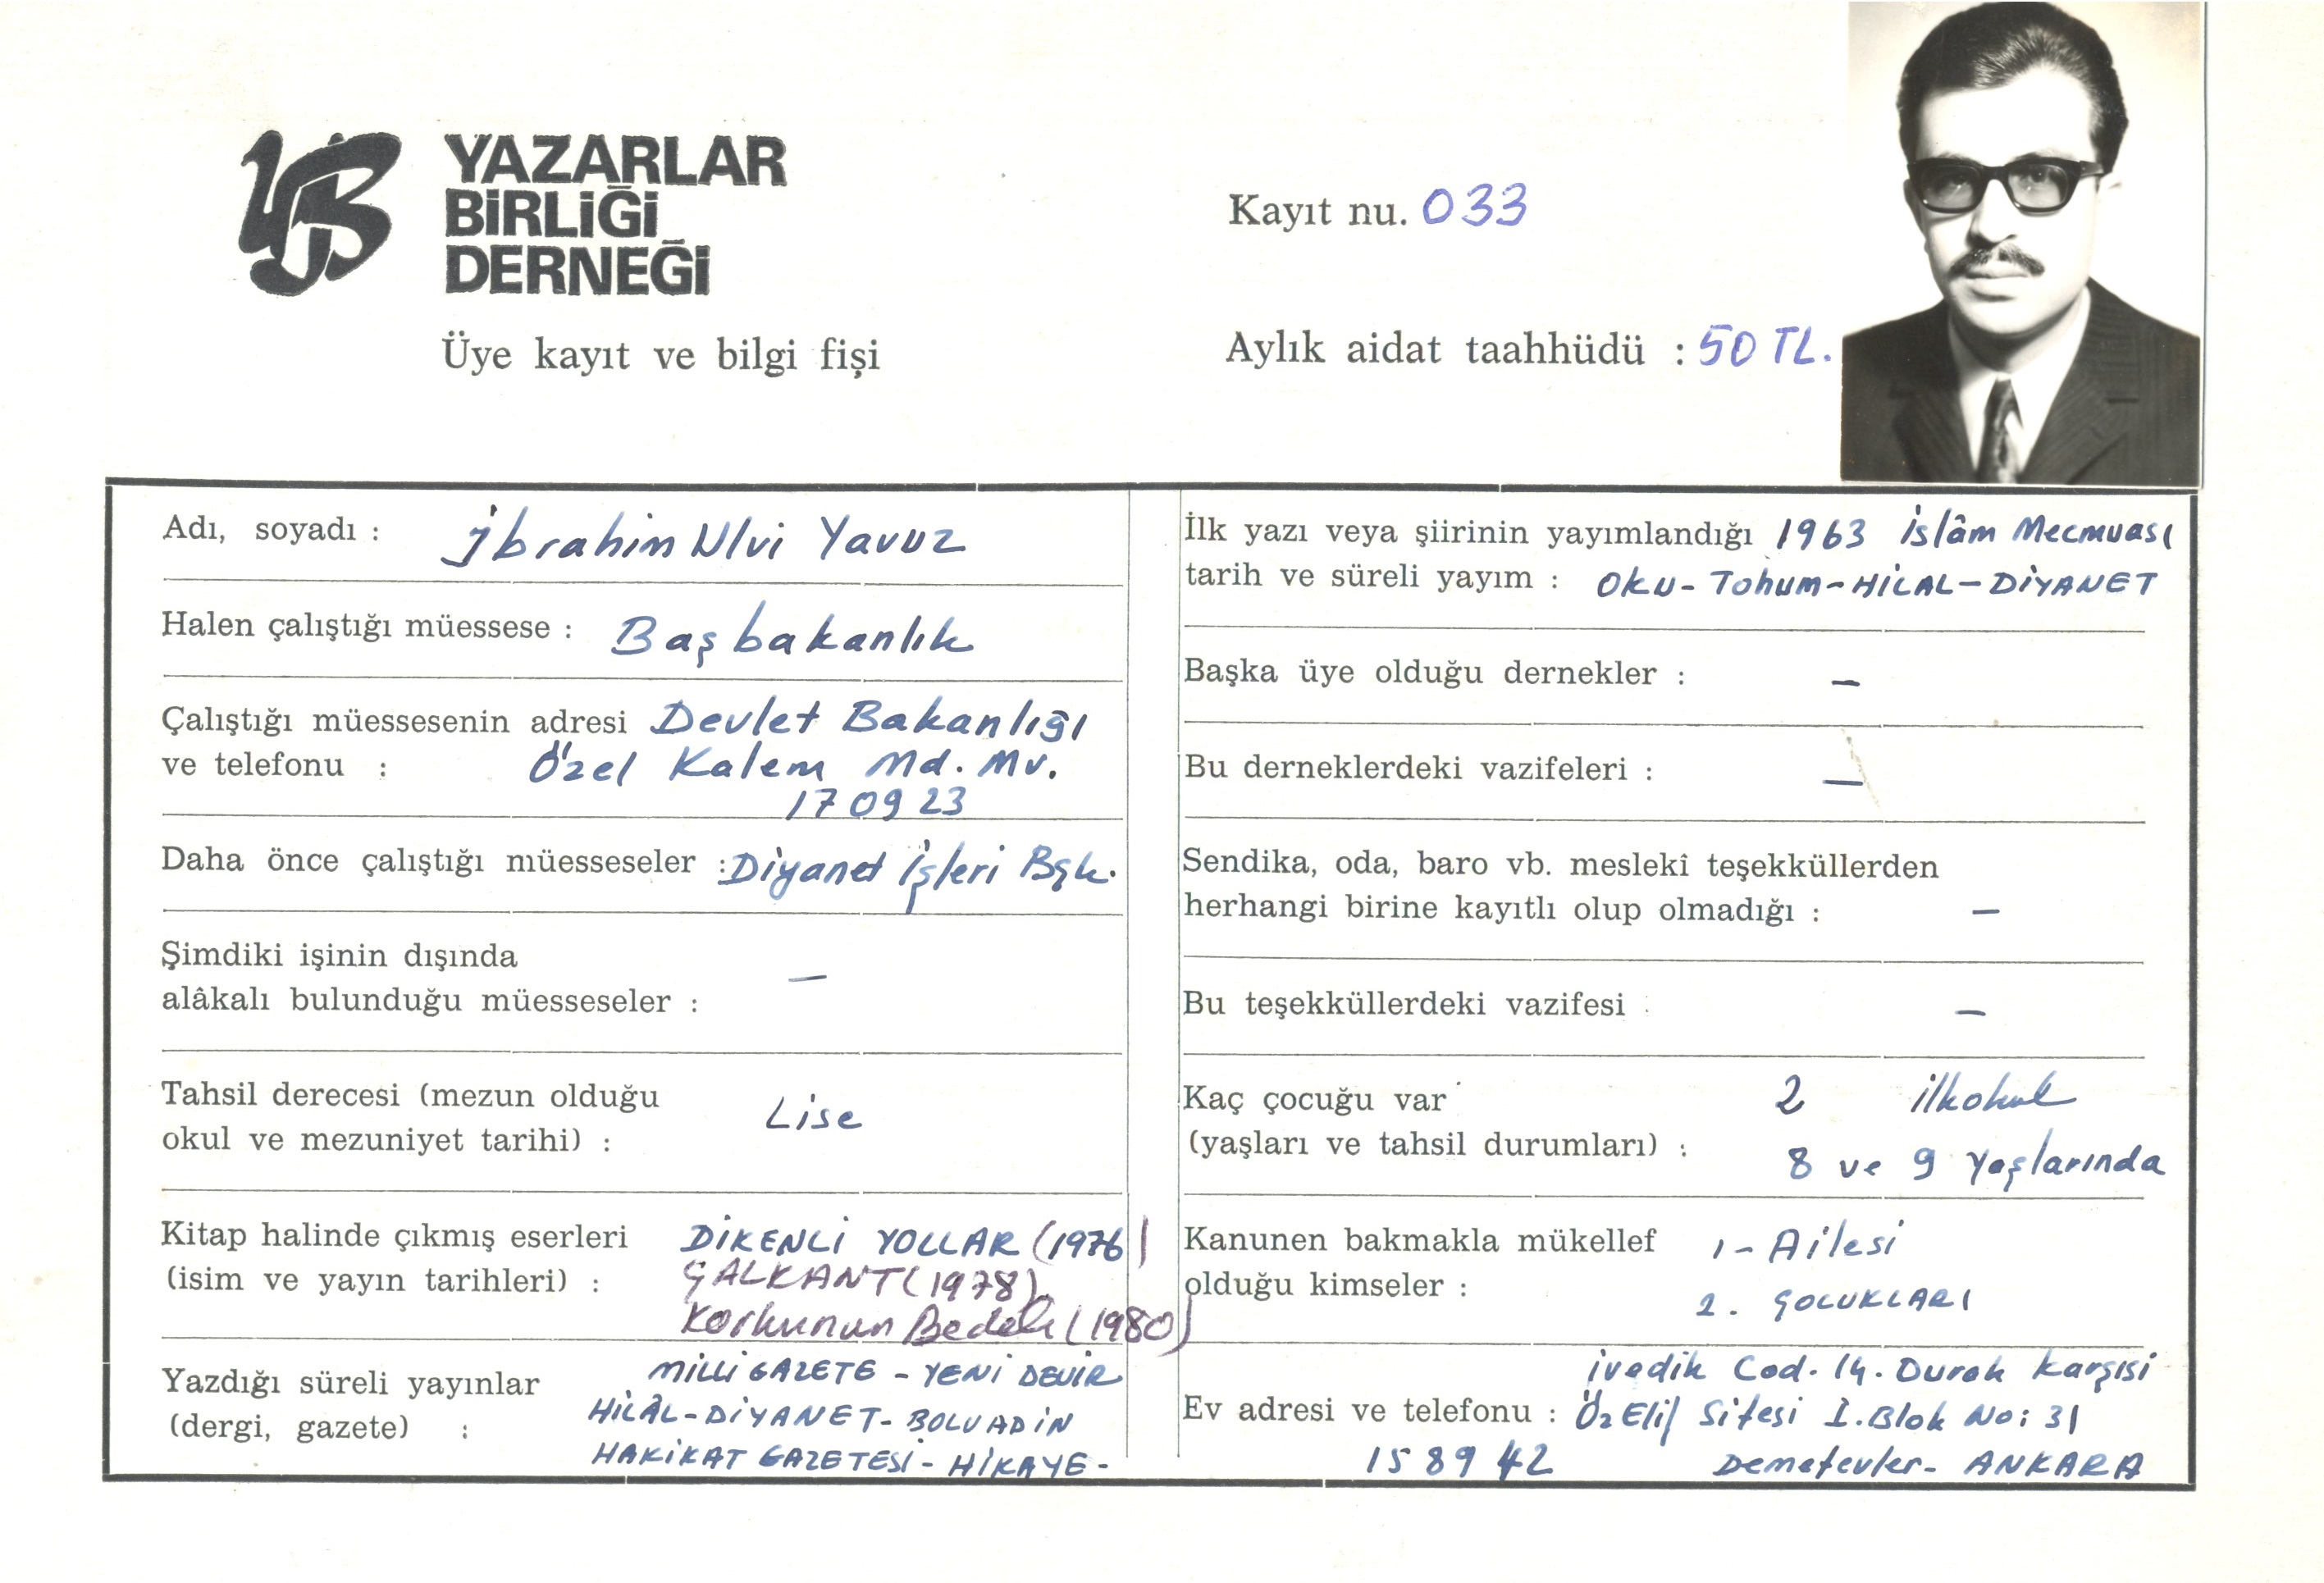 YB
YAZARLAR
BİRLİĞİ
DERNEĞİ
Üye kayıt ve bilgi fişi
Kayıt nu. 033
Aylık aidat taahhüdü : 50 TL.
Adı, soyadı : İbrahim Ulvi Yavuz
Halen çalıştığı müessese : Başbakanlık
Çalıştığı müessesenin adresi Devlet Bakanlığı
ve telefonu : Özel Kalem Md. Mv.
17 09 23
Daha önce çalıştığı müesseseler : Diyanet İşleri Bşk.
Şimdiki işinin dışında
alâkalı bulunduğu müesseseler : —
Tahsil derecesi (mezun olduğu
okul ve mezuniyet tarihi) : Lise
Kitap halinde çıkmış eserleri DİKENLİ YOLLAR (1976)
(isim ve yayın tarihleri) : ÇALKANT (1978)
Korkunun Bedeli (1980)
Yazdığı süreli yayınlar MİLLİ GAZETE - YENİ DEVİR
(dergi, gazete) : HİLÂL-DİYANET-BOLVADİN
HAKİKAT GAZETESİ - HİKAYE-
İlk yazı veya şiirinin yayımlandığı 1963 İslâm Mecmuası
tarih ve süreli yayım : OKU- Tohum-HİLAL-DİYANET
Başka üye olduğu dernekler : —
Bu derneklerdeki vazifeleri : —
Sendika, oda, baro vb. meslekî teşekküllerden
herhangi birine kayıtlı olup olmadığı : —
Bu teşekküllerdeki vazifesi : —
Kaç çocuğu var 2 ilkokul
(yaşları ve tahsil durumları) : 8 ve 9 yaşlarında
Kanunen bakmakla mükellef 1- Ailesi
olduğu kimseler : 2. ÇOCUKLARI
İvedik Cad. 14. Durak Karşısı
Ev adresi ve telefonu : Öz Elif Sitesi I. Blok No: 31
15 89 42 Demetevler- ANKARA